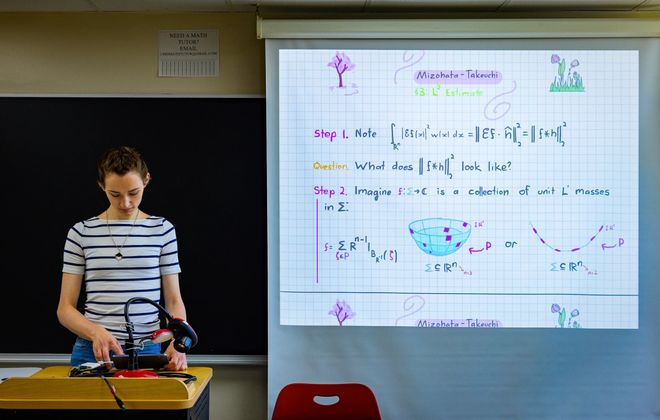 NEED A MATH
TUTOR?
EMAIL
Mizohata-Takeuchi
§3: L² Estimate
Step 1. Note ∫_{ℝⁿ} |Ef(x)|² w(x) dx = ||Ef · ĥ||₂² = ||f*h||₂²
Question. What does ||f*h||₂² look like?
Step 2. Imagine f: Σ→ℂ is a collection of unit L¹ masses
in Σ:
f = Σ_{ξ∈P} R^{n-1} 1_{B_{R^{-1}}(ξ)}
IR⁻¹
P
or
IR⁻¹
P
Σ ⊆ ℝⁿ n=3
Σ ⊆ ℝⁿ n=2
Mizohata-Takeuchi